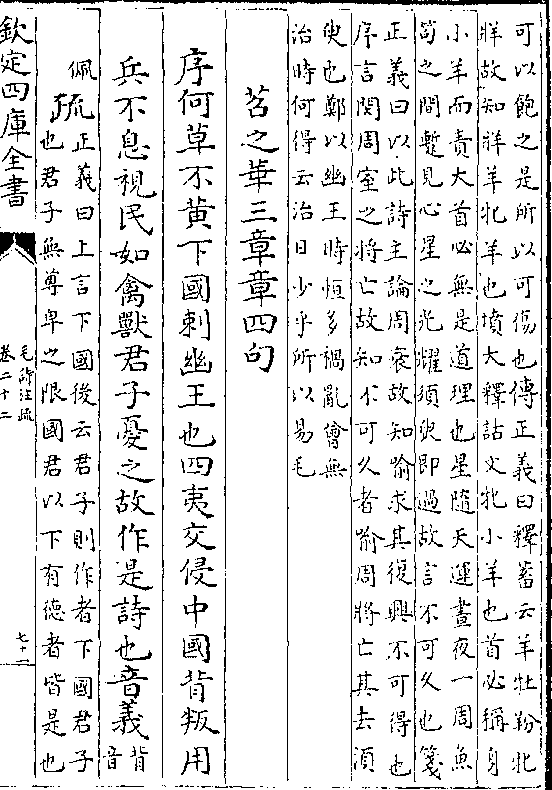 可以飽之是所以可傷也傳正義曰釋蓄云羊牡羒牝
牂故知牂羊牝羊也墳大釋詁文牝小羊也首必稱身
小羊而責大首必無是道理也星隨天運晝夜一周魚
笱之間暫見心星之光耀須臾即過故言不可久也箋
正義曰以此詩主論周衰故知喻求其復興不可得也
序言閔周室之將亡故知不可久者喻周將亡其去須
臾也鄭以幽王時恒多禍亂曾無
治時何得云治日少乎所以易毛
苕之華三章章四句
序何草不黃下國刺幽王也四夷交侵中國背叛用
兵不息視民如禽獸君子憂之故作是詩也音義背音
佩疏正義曰上言下國後云君子則作者下國君子
也君子無尊卑之限國君以下有德者皆是也
欽定四庫全書
毛詩注疏
卷二十二
七十二